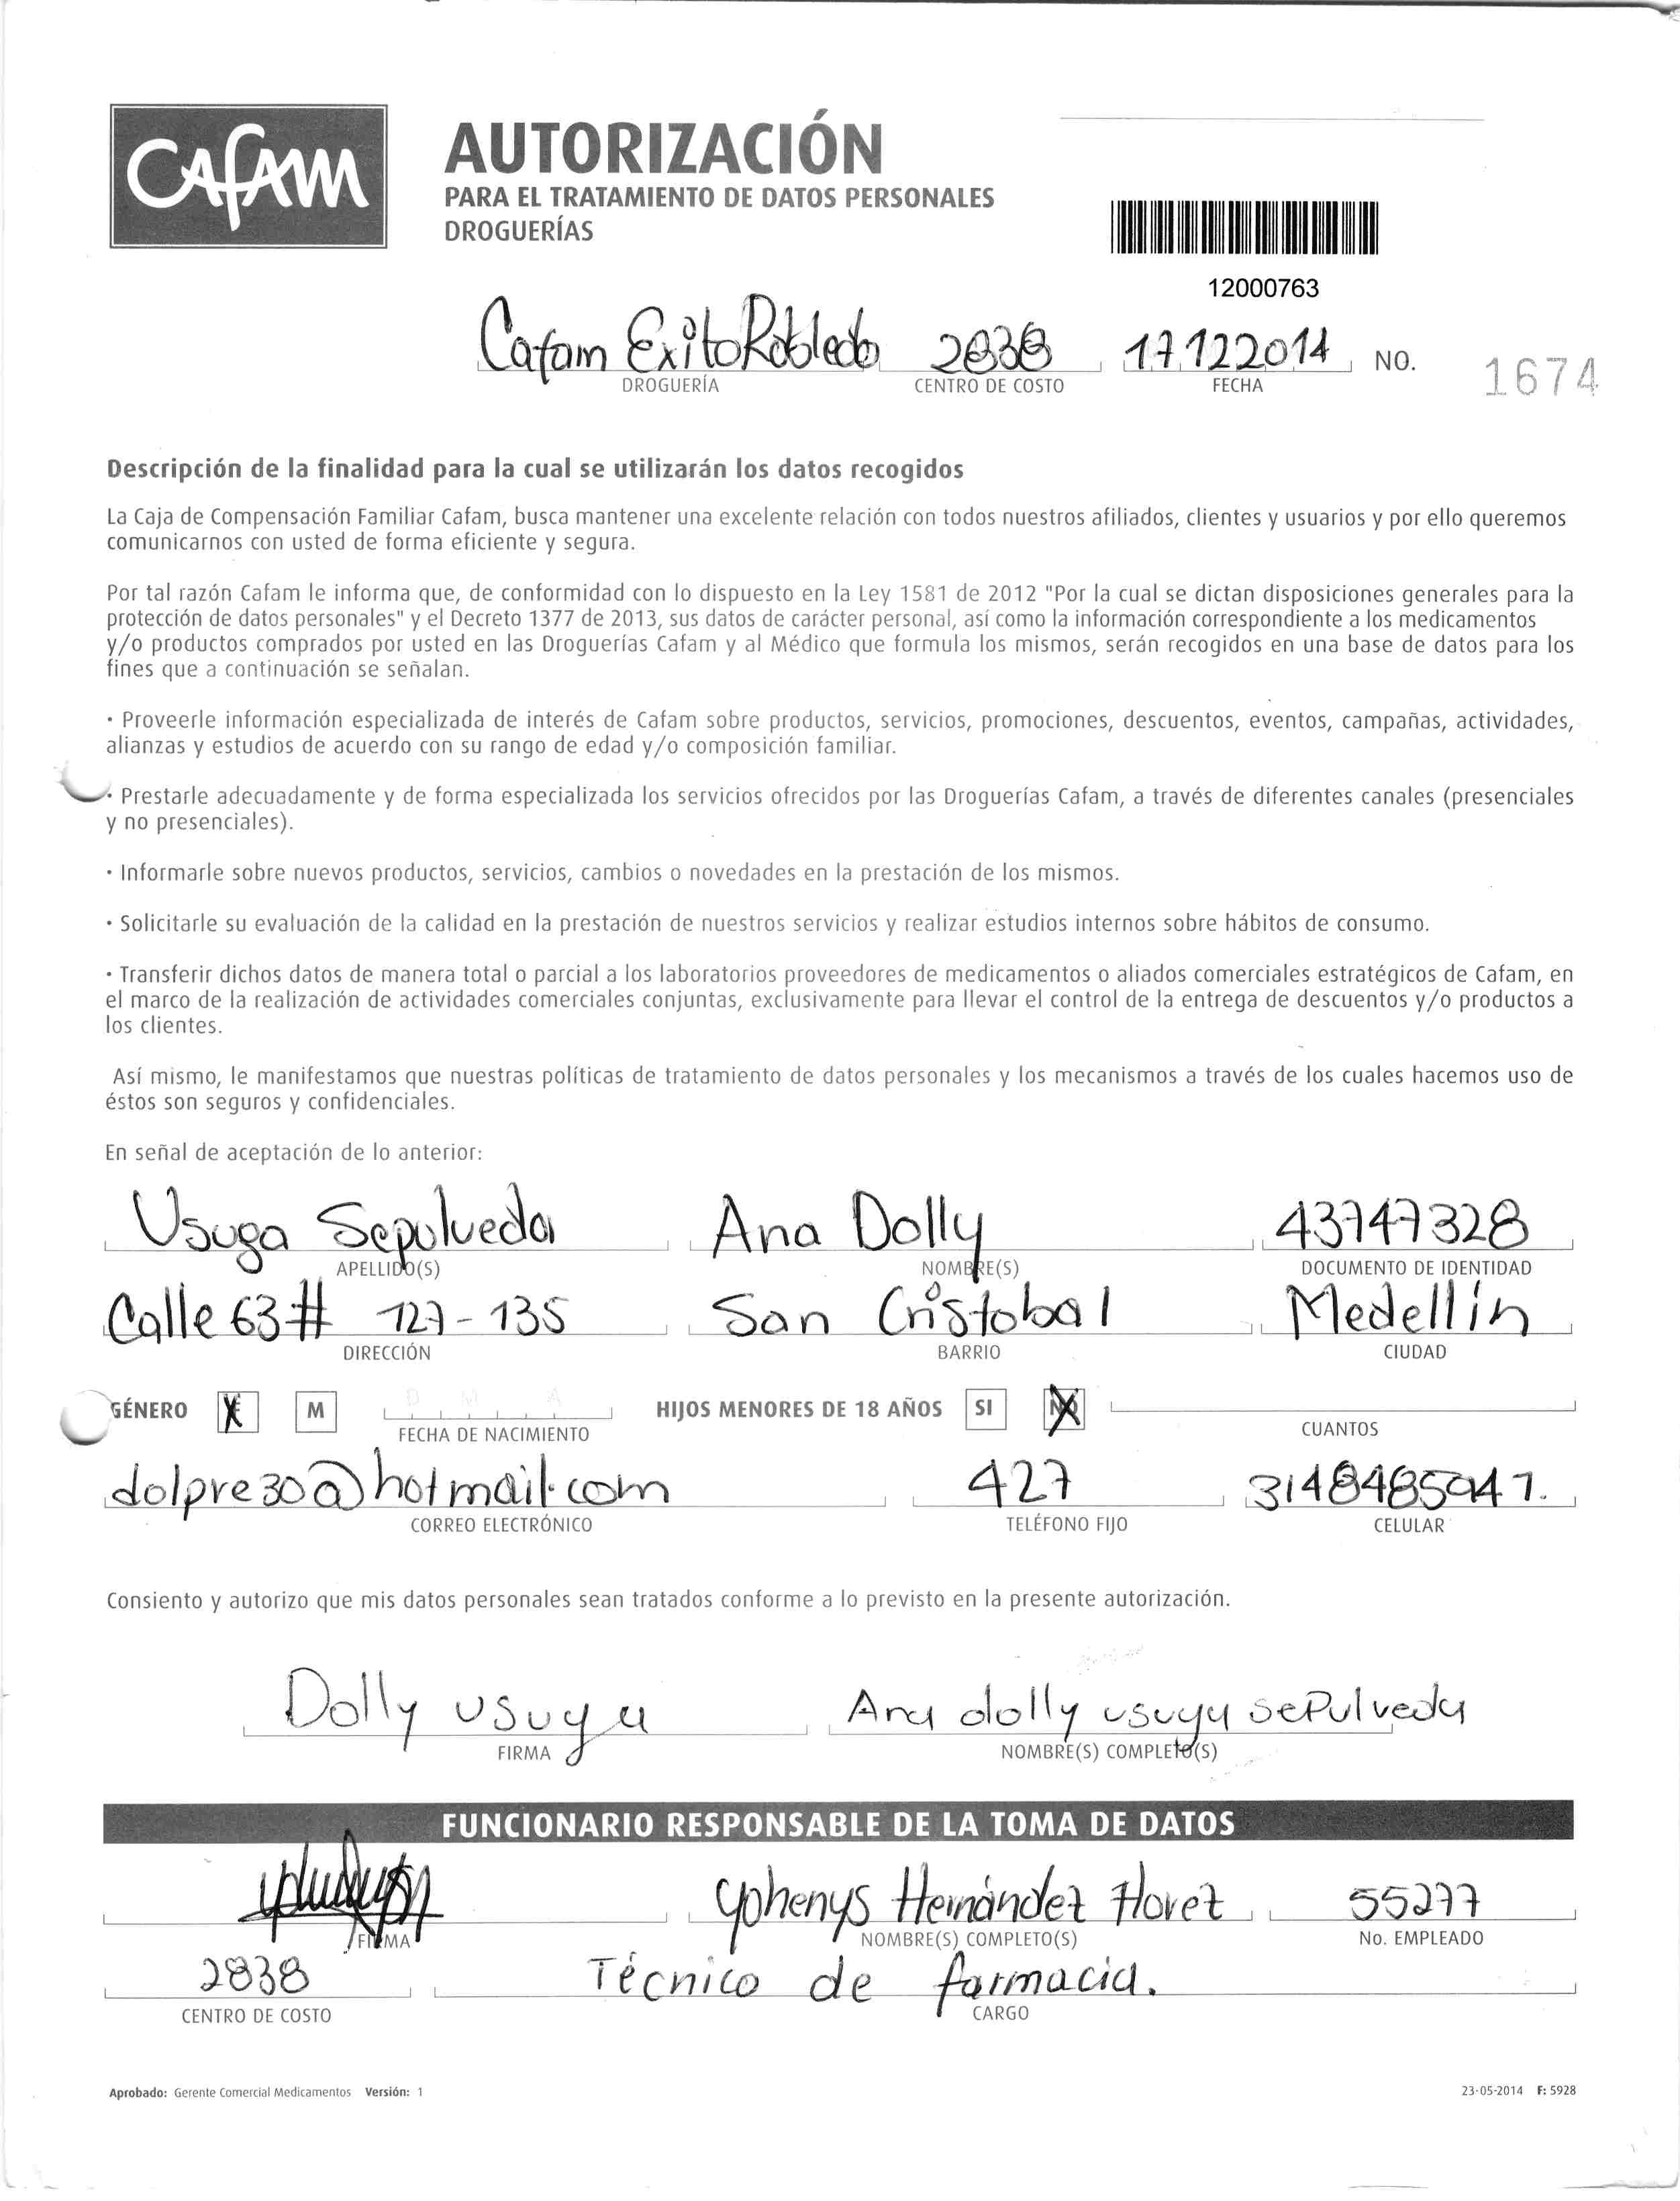 Cafam
AUTORIZACIÓN
PARA EL TRATAMIENTO DE DATOS PERSONALES
DROGUERÍAS
12000763
Cafam ExitoRobledo 2838 17122014 NO. 1674
DROGUERÍA CENTRO DE COSTO FECHA
Descripción de la finalidad para la cual se utilizarán los datos recogidos
La Caja de Compensación Familiar Cafam, busca mantener una excelente relación con todos nuestros afiliados, clientes y usuarios y por ello queremos
comunicarnos con usted de forma eficiente y segura.
Por tal razón Cafam le informa que, de conformidad con lo dispuesto en la Ley 1581 de 2012 "Por la cual se dictan disposiciones generales para la
protección de datos personales" y el Decreto 1377 de 2013, sus datos de carácter personal, así como la información correspondiente a los medicamentos
y/o productos comprados por usted en las Droguerías Cafam y al Médico que formula los mismos, serán recogidos en una base de datos para los
fines que a continuación se señalan.
· Proveerle información especializada de interés de Cafam sobre productos, servicios, promociones, descuentos, eventos, campañas, actividades,
alianzas y estudios de acuerdo con su rango de edad y/o composición familiar.
· Prestarle adecuadamente y de forma especializada los servicios ofrecidos por las Droguerías Cafam, a través de diferentes canales (presenciales
y no presenciales).
· Informarle sobre nuevos productos, servicios, cambios o novedades en la prestación de los mismos.
· Solicitarle su evaluación de la calidad en la prestación de nuestros servicios y realizar estudios internos sobre hábitos de consumo.
· Transferir dichos datos de manera total o parcial a los laboratorios proveedores de medicamentos o aliados comerciales estratégicos de Cafam, en
el marco de la realización de actividades comerciales conjuntas, exclusivamente para llevar el control de la entrega de descuentos y/o productos a
los clientes.
Así mismo, le manifestamos que nuestras políticas de tratamiento de datos personales y los mecanismos a través de los cuales hacemos uso de
éstos son seguros y confidenciales.
En señal de aceptación de lo anterior:
Usuga Sepulveda Ana Dolly 43747328
APELLIDO(S) NOMBRE(S) DOCUMENTO DE IDENTIDAD
Calle 63# 127-135 San Cristobal Medellín
DIRECCIÓN BARRIO CIUDAD
GÉNERO X M D M A HIJOS MENORES DE 18 AÑOS SI NO X
FECHA DE NACIMIENTO CUANTOS
dolpre30@hotmail.com 427 3148485947.
CORREO ELECTRÓNICO TELÉFONO FIJO CELULAR
Consiento y autorizo que mis datos personales sean tratados conforme a lo previsto en la presente autorización.
Dolly usuga Ana dolly usuga sePulveda
FIRMA NOMBRE(S) COMPLETO(S)
FUNCIONARIO RESPONSABLE DE LA TOMA DE DATOS
Yohenys Hernández Florez 55277
FIRMA NOMBRE(S) COMPLETO(S) No. EMPLEADO
2838 Técnico de farmacia.
CENTRO DE COSTO CARGO
Aprobado: Gerente Comercial Medicamentos Versión: 1 23-05-2014 F: 5928